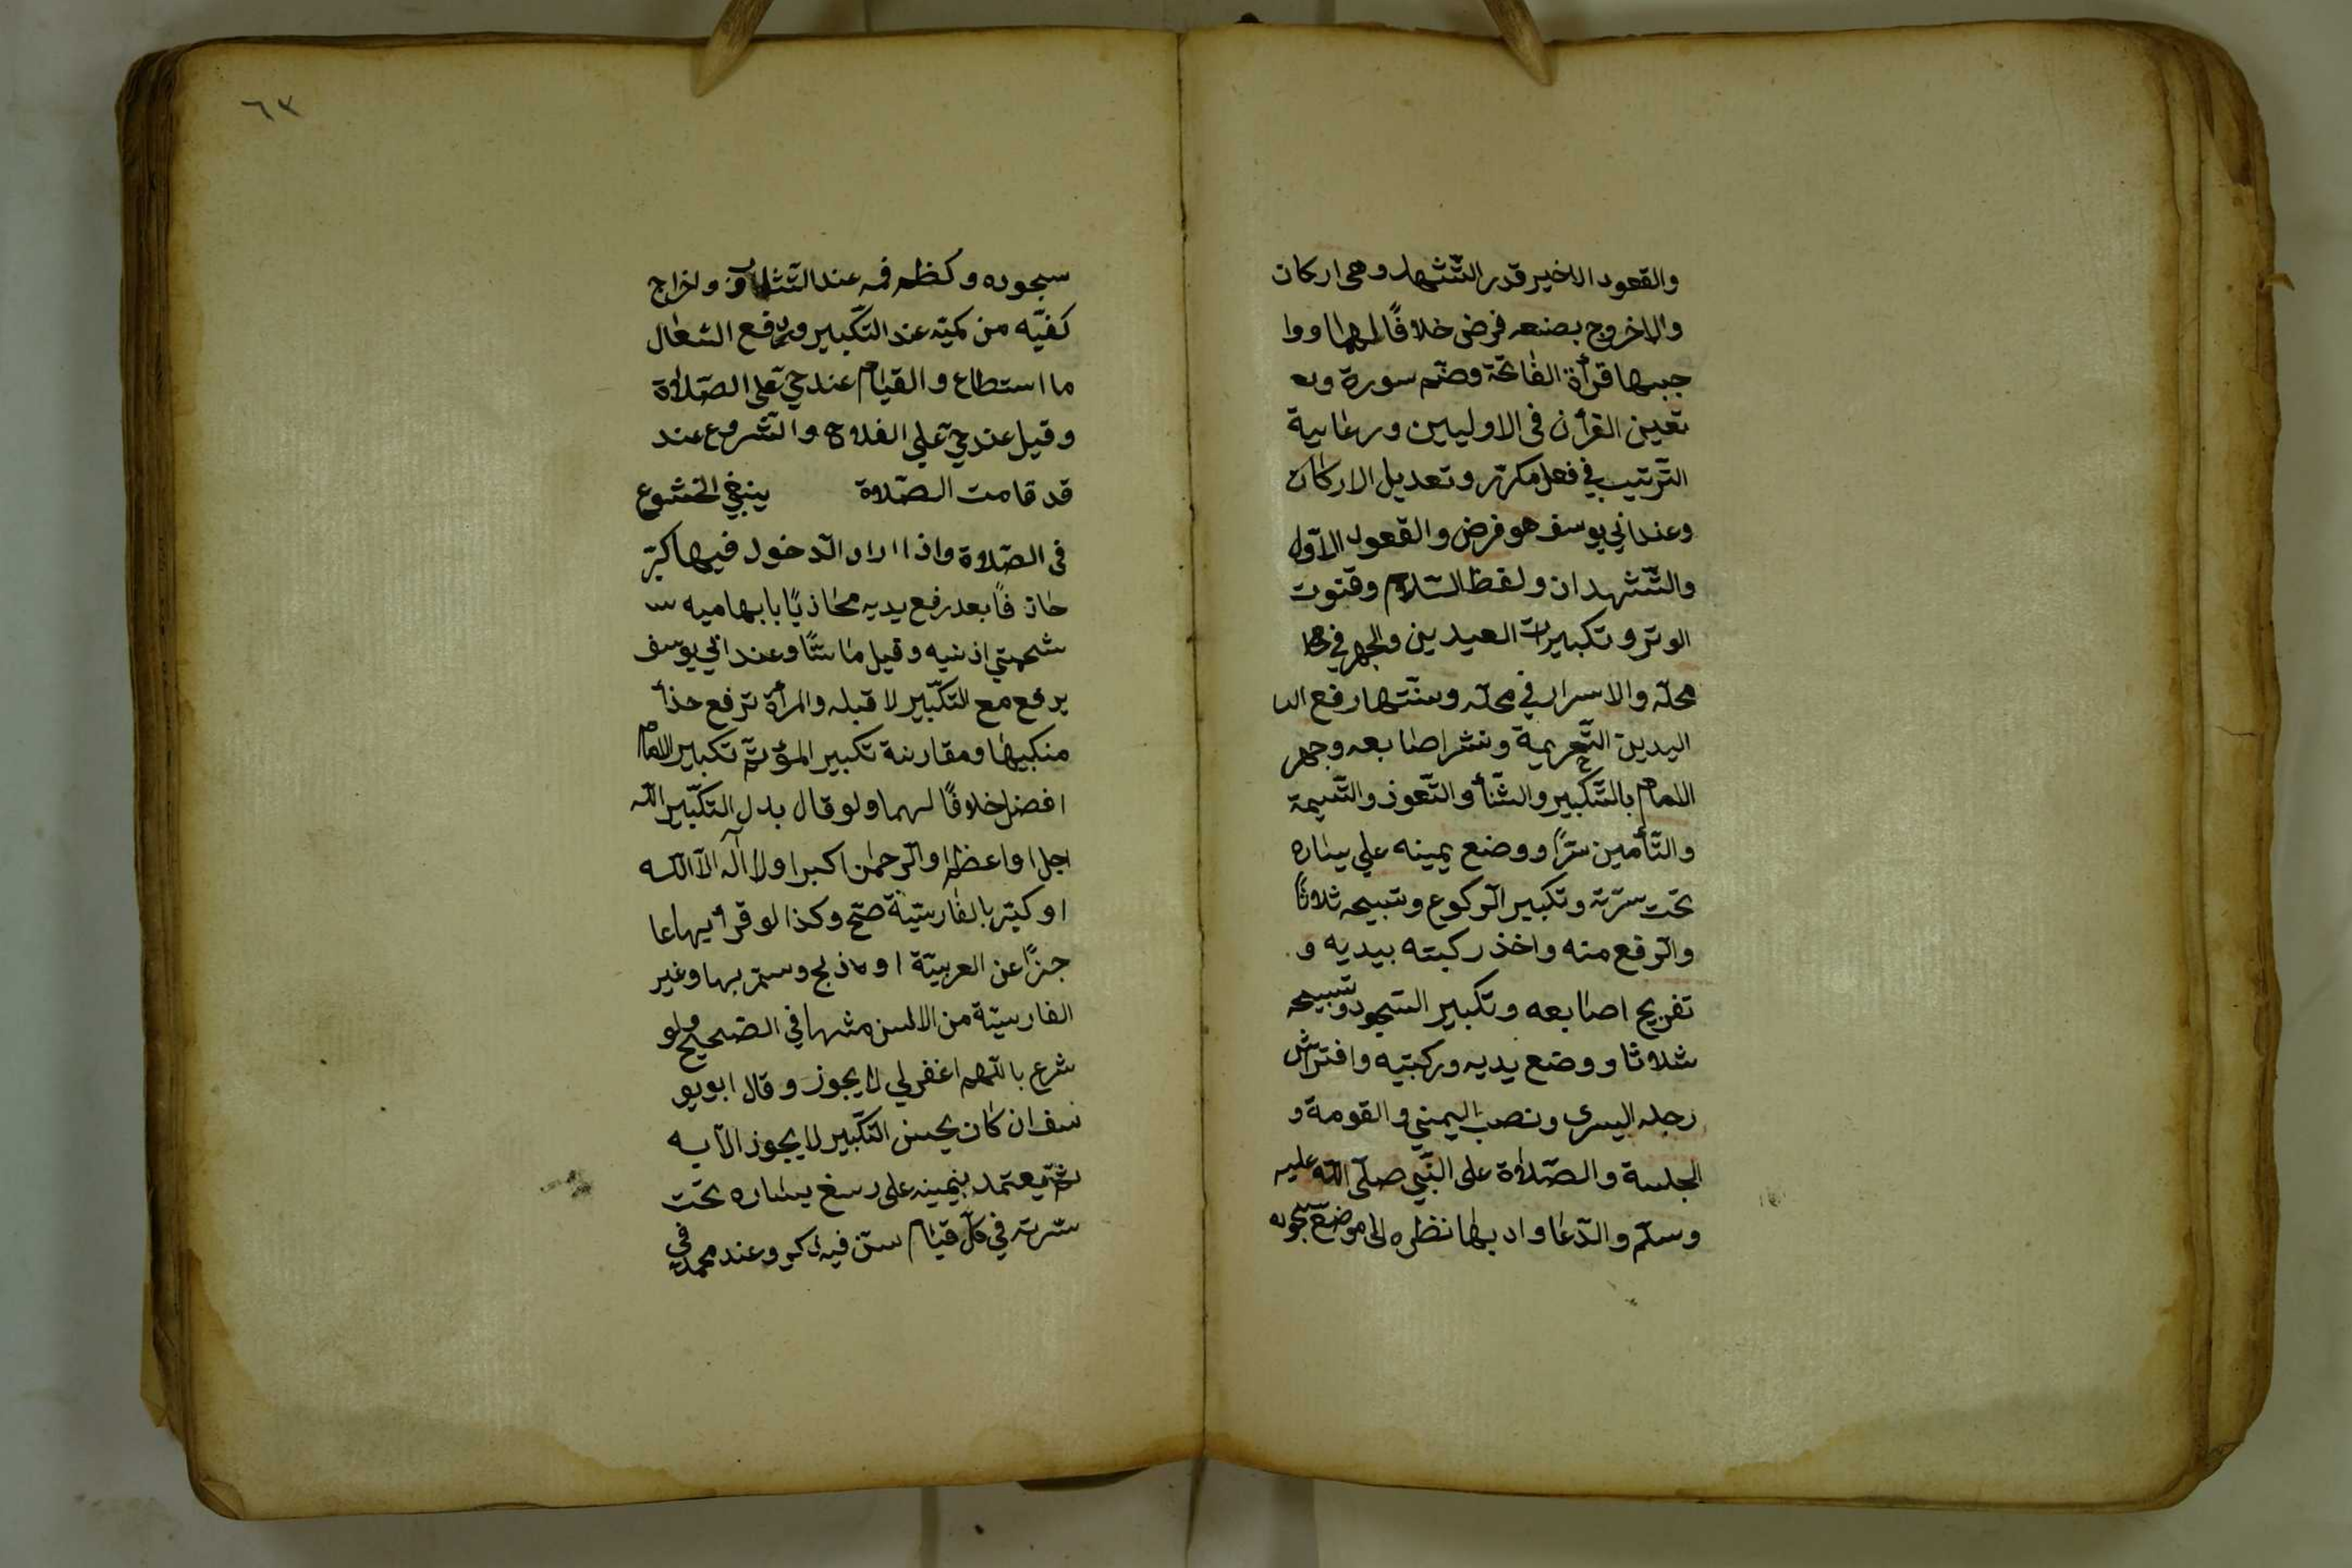 والقعود الاخير قدر التّشهد وهى اركان
والاخروج بصنعه فرض خلافًا لهما ووا
جبها قرأة الفاتحة وضم سورة وت
تعين القرأن فى الاوليين ورعاية
التّرتيب في فعل مكرّر وتعديل الاركان
وعند ابي يوسف هو فرض والقعود الاوّل
والتّشهدان ولفظ السّلام وقنوت
الوتر وتكبيرات العيدين والجهر في
محلّه والاسرار في محلّه وسنّتها رفع الد
اليدين التّحريمة ونشر اصابعه وجهر
الامام بالتّكبير والثّنأ والتّعوذ والتّسمية
والتّأمين سرًّا ووضع يمينه علي يساره
تحت سرّته وتكبير الرّكوع وتسبيحه ثلاثًا
والرّفع منه واخذ ركبته بيديه و
تفريج اصابعه وتكبير السّجود وتسبيحه
ثلاثا ووضع يديه وركبتيه وافتراش
رجله اليسرى ونصب اليمني والقومة و
الجلسة والصّلاة على النّبي صلّى اللّه عليه
وسلّم والدّعا وادبها نظره الى موضع سجوده
٦٣
سجوده وكظم فمه عند التّثاؤب واخراج
كفيّه من كميّه عند التّكبير ودفع السّعال
ما استطاع والقيام عند حيّ على الصّلاة
وقيل عند حيّ علي الفلاح والشّروع عند
قد قامت الصّلاوة ينبغي الخشوع
فى الصّلاوة واذا اراد الدّخول فيها كبّر
حاذفًا بعد رفع يديه محاذيًا بابهاميه
شحمتي اذنيه وقيل ماسّا وعند ابي يوسف
يرفع مع التّكبير لا قبله والمرأة ترفع حذأ
منكبيها ومقارنة تكبير المؤتمّ تكبير الامام
افضل خلافًا لهما ولو قال بدل التّكبير اللّه
اجل او اعظم او الرّحمن اكبر او لا اله الاّ اللّه
او كبّر بالفارسيّة صحّ وكذا لو قرأ بها عا
جزًا عن العربيّة او ذبح وسمّ بها وغير
الفارسيّة من الالسن مثلها في الصّحيح ولو
شرع باللّهم اغفر لي لا يجوز وقال ابو يو
سف ان كان يحسن التّكبير لا يجوز الاّ به
ثمّ يعتمد بيمينه على رسغ يساره تحت
سرّته في كلّ قيام سنّ فيه ذكر وعند محمّد في